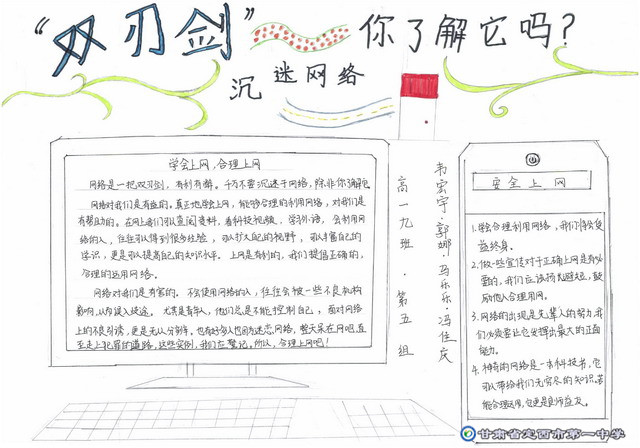 “双刃剑”你了解它吗?
沉迷网络
学会上网,合理上网
网络是一把双刃剑,有利有弊。千万不要沉迷于网络,除非你了解它
网络对我们是有益的。真正地学会上网,能够合理的利用网络,对我们是
有帮助的。在网上我们可以查阅资料,看科技视频,学习外语,会利用网
络的人,往往可以得到很多经验,可以扩大自己的视野,可以丰富自己的
学识,更是可以提高自己的知识水平。上网是有利的,我们提倡正确的,
合理的运用网络。
网络对我们是有害的。不会使用网络的人,往往会被一些不良机构
影响,以致误入歧途。尤其是青年人,他们总是不能控制自己,面对网络
上的不良引诱,更是无从分辨。也有好多人因为迷恋网络,整天呆在网吧,直
至走上犯罪的道路,这些实例,我们应警记,所以,合理上网吧!
高一九班·第五组
韦宏宇·郭娜·马乐乐·冯佳庆
安全上网
1.学会合理利用网络,我们将会受
益终身。
2.做一些宣传对于正确上网是有必
要的,我们应该扬长避短,鼓
励他人合理用网。
3.网络的出现是先辈人的努力,我
们必须要让它发挥出最大的正面
能力。
4.神奇的网络是一本科技书,它
可以带给我们无穷尽的知识,若
能合理运用,也更是良师益友。
甘肃省定西市第一中学